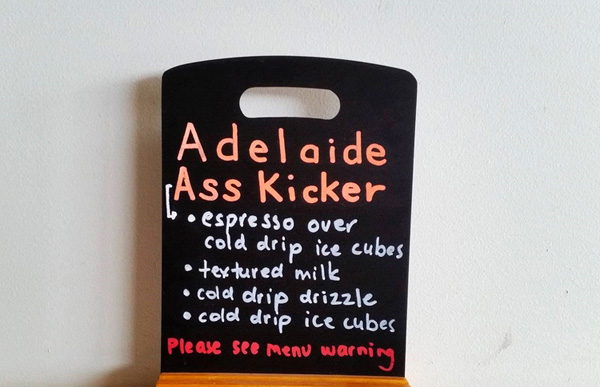 Adelaide
Ass Kicker
• espresso over
cold drip ice cubes
• textured milk
• cold drip drizzle
• cold drip ice cubes
Please see menu warning